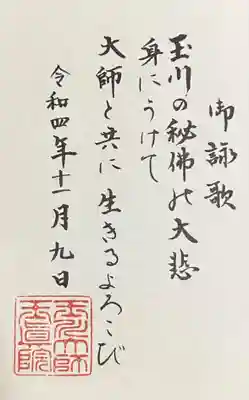 御詠歌
玉川の秘佛の大悲
身にうけて
大師と共に生きるよろこび
令和四年十一月九日